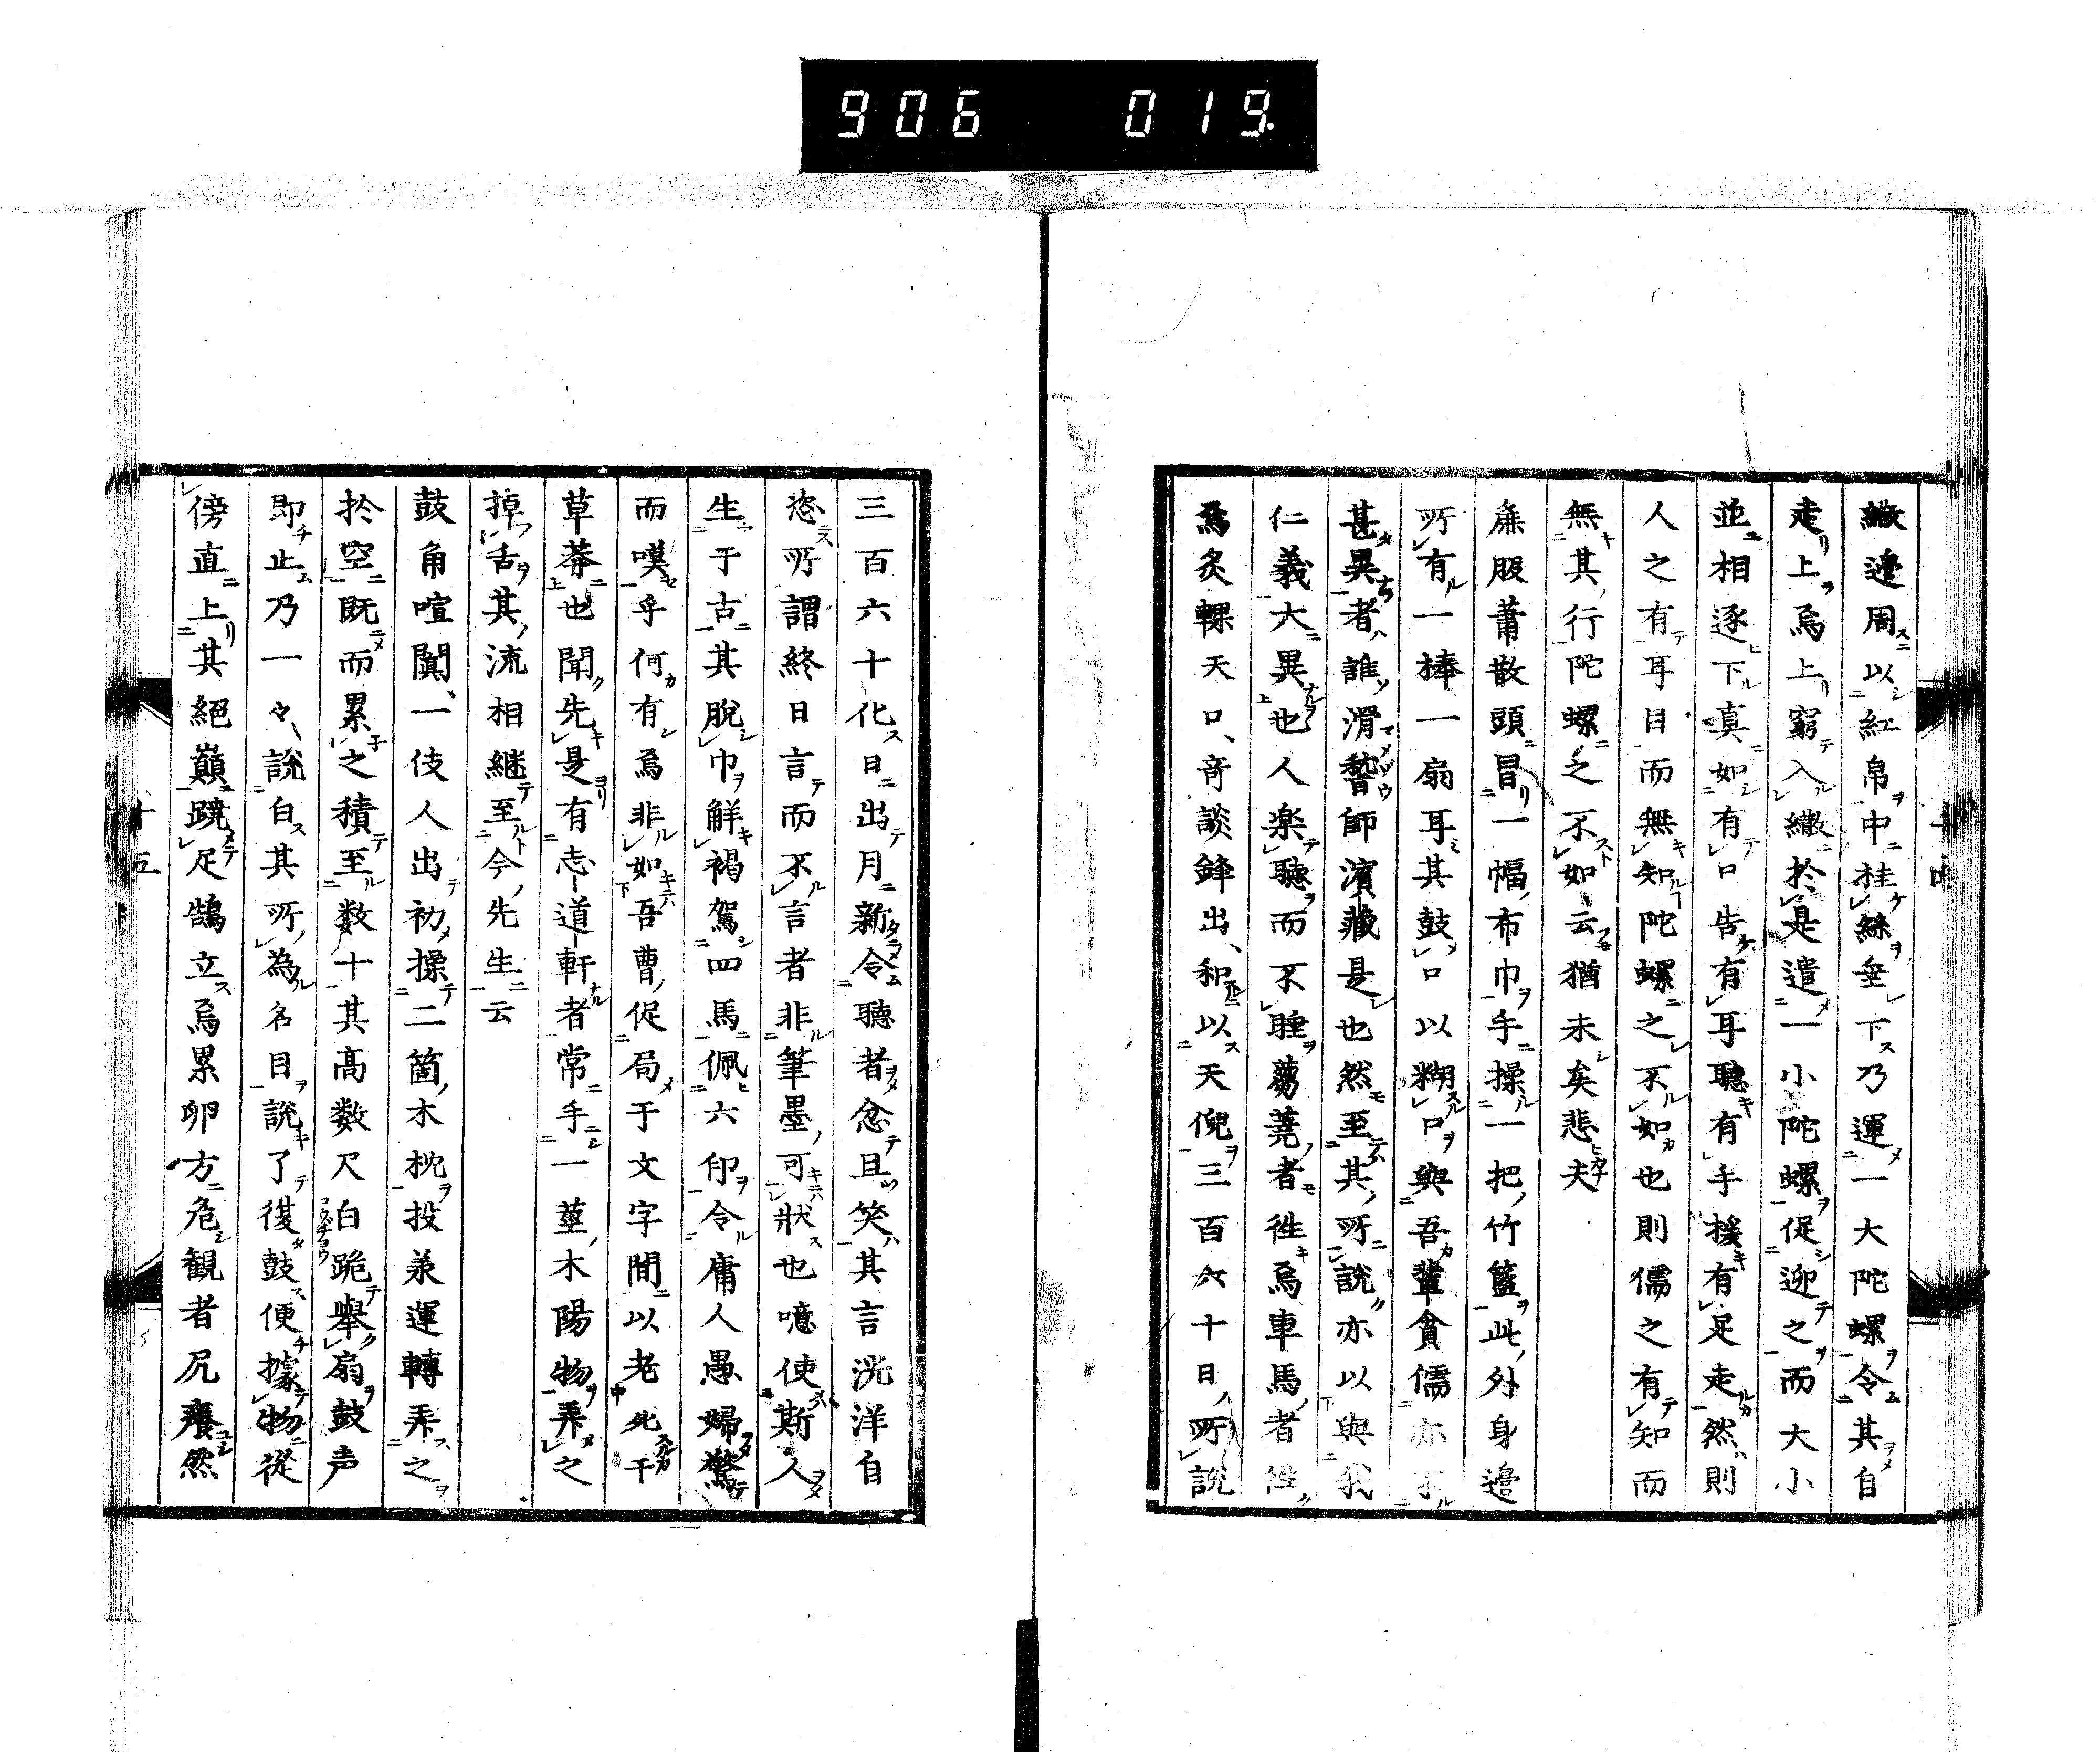 906 019
繖邊周以紅帛中桂絲垂下乃運一大陀螺令其自
走上焉上窮入繖於是遣一小陀螺促迎之而大小
並相逐下真如有口告有耳聽有手援有足走然則
人之有耳目而無知陀螺之不如也則儒之有知而
無其行陀螺之不如云猶未矣悲夫
廉服蕭散頭冒一幅布巾手操一把竹籃此外身邊
所有一棒一扇耳其鼓口以糊口與吾輩貪儒亦不
甚異者誰滑稽師濱藏是也然至其所說亦以與我
仁義大異也人楽聽而不睡蒭蕘者徃焉車馬者徃
焉炙輠天口奇談鋒出和以天倪三百六十日所說
三百六十化日出月新令聽者忿且笑其言洸洋自
恣所謂終日言而不言者非筆墨可狀也噫使斯人
生于古其脫巾解褐駕四馬佩六印令庸人愚婦驚
而嘆乎何有焉非如吾曹促局于文字間以老死于
草莽也聞先是有志道軒者常手一莖木陽物弄之
掉舌其流相継至今先生云
鼓角喧闐一伎人出初操二箇木枕投承運轉弄之
扵空既而累之積至数十其高数尺白跪舉扇鼓声
即止乃一々說白其所為名目說了復鼓便據物從
傍直上其絕巔蹺足鵠立焉累卵方危観者尻癢然
十五